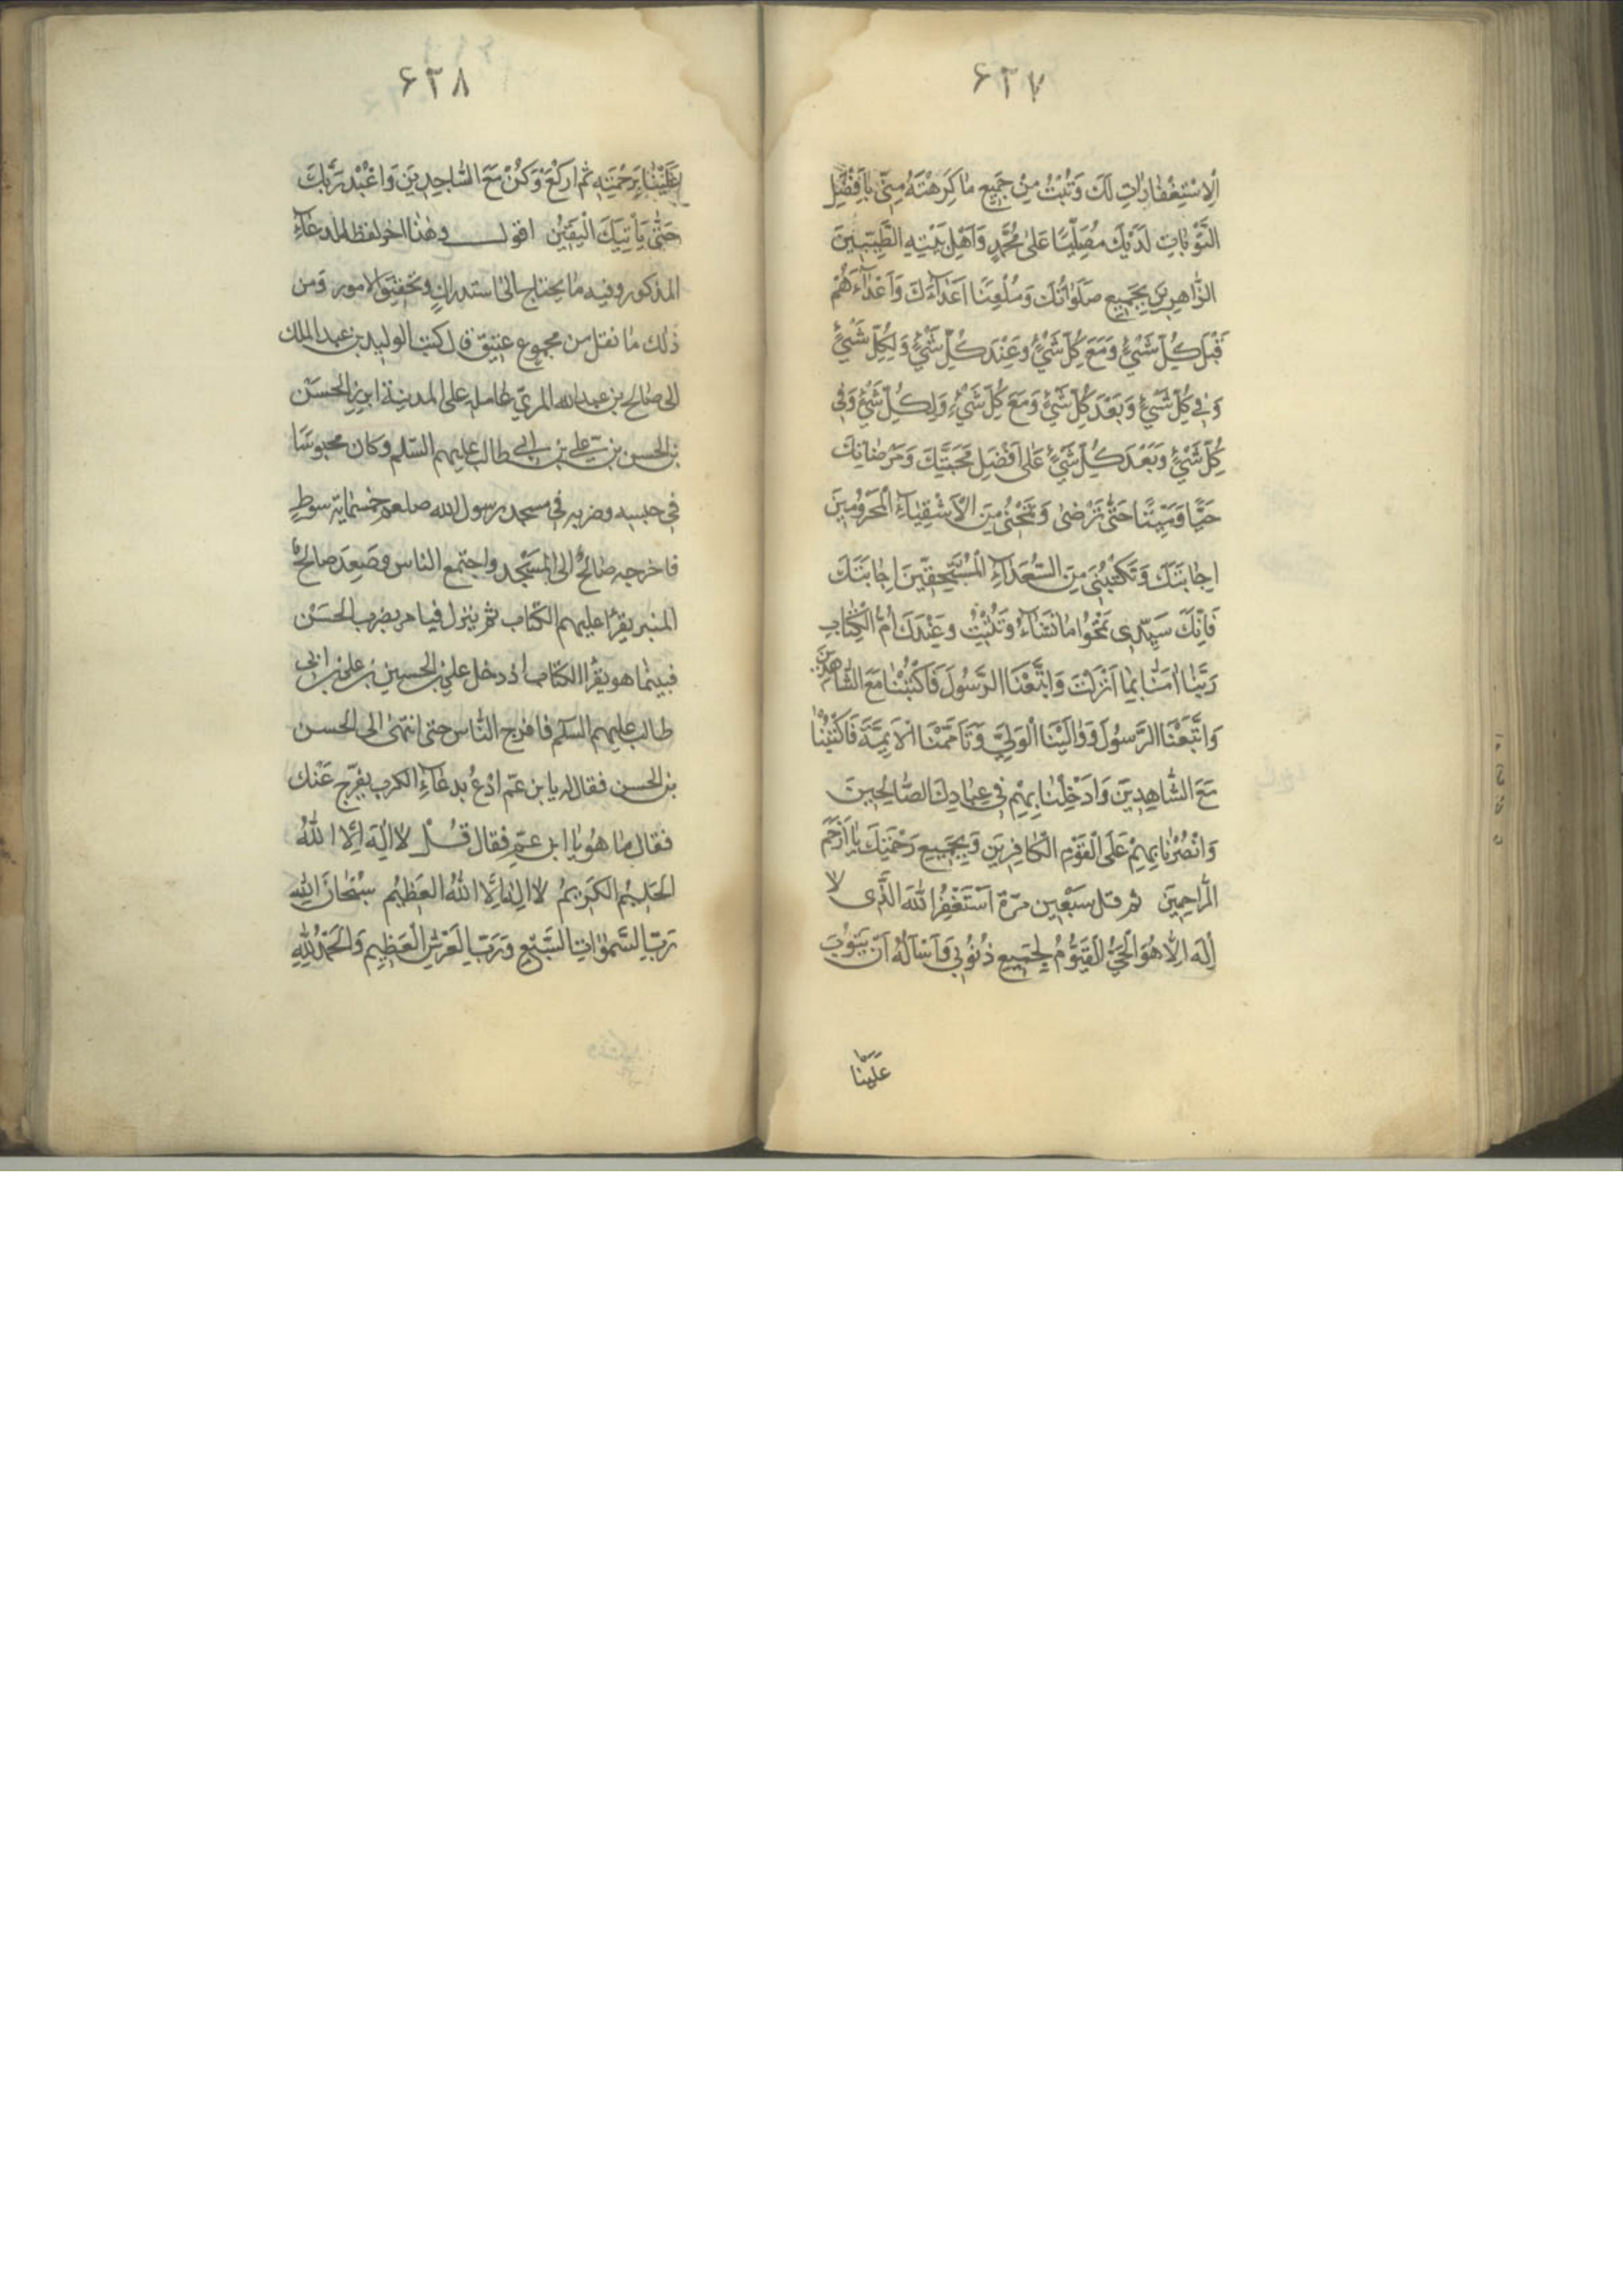 ۶۳۷
اِلاسْتِغْفاراتِ لَكَ وَتُبْتُ مِنْ جَميعِ ما كَرِهْتَهُ مِنّى بِاَفْضَلِ
التَّوْباتِ لَدَيْكَ مُصَلِّيًا عَلى مُحَمَّدٍ وَاَهْلِ بَيْتِهِ الطَّيِّبينَ
الزّاهِرينَ بِجَميعِ صَلَواتِكَ وَمُلْعِنًا اَعْداءَكَ وَاَعْداءَهُمْ
قَبْلَ كُلِّ شَىْءٍ وَمَعَ كُلِّ شَىْءٍ وَعِنْدَ كُلِّ شَىْءٍ وَلِكُلِّ شَىْءٍ
وَفى كُلِّ شَىْءٍ وَبَعْدَ كُلِّ شَىْءٍ وَمَعَ كُلِّ شَىْءٍ وَلِكُلِّ شَىْءٍ وَفى
كُلِّ شَىْءٍ وَبَعْدَ كُلِّ شَىْءٍ عَلى اَفْضَلِ مَحَبَّتِكَ وَمَرْضاتِكَ
حَيًّا وَمَيِّتًا حَتّى تَرْضى وَتَمْحُنى مِنَ الْاَشْقِياءِ الْمَحْرُومينَ
اِجابَتَكَ وَتَكْتُبَنى مِنَ السُّعَداءِ الْمُسْتَحِقّينَ اِجابَتَكَ
فَاِنَّكَ سَيِّدى تَمْحُوا ما تَشاءُ وَتُثْبِتُ وَعِنْدَكَ اُمُّ الْكِتابِ
رَبَّنا امَنّا بِما اَنْزَلْتَ وَاتَّبَعْنَا الرَّسُولَ فَاكْتُبْنا مَعَ الشّاهِدينَ
وَاتَّبَعْنَا الرَّسُولَ وَوالَيْنَا الْوَلِيَّ وَتَاَمَّمْنَا الْاَئِمَّةَ فَاكْتُبْنا
مَعَ الشّاهِدينَ وَاَدْخِلْنا بِهِمْ فى عِبادِكَ الصّالِحينَ
وَانْصُرْنا بِهِمْ عَلَى الْقَوْمِ الْكافِرينَ وَبِجَميعِ رَحْمَتِكَ يا اَرْحَمَ
الرّاحِمينَ ثم قل سَبْعين مرّة اَسْتَغْفِرُ اللهَ الَّذى لا
اِلهَ اِلّا هُوَ الْحَىُّ الْقَيُّومُ لِجَميعِ ذُنُوبى وَاَسْاَلُهُ اَنْ يَتُوبَ
عَلَيْنا
۶۳۸
عَلَيْنا بِرَحْمَتِهِ ثم ارْكَعْ وَكُنْ مَعَ السّاجِدينَ وَاعْبُدْ رَبَّكَ
حَتّى يَأْتِيَكَ الْيَقينُ اقول وهذا اخر لفظ الدعاء
المذكور وفيه ما يحتاج الى استدراك وتحقيق لامور ومن
ذلك ما نقل من مجموع عتيق قال كتب الوليد بن عبد الملك
الى صالح بن عبد الله المرّي عامله على المدينة ابرز الحسن
بن الحسن بن علي بن ابي طالب عليهم السّلم وكان محبوسًا
في حبسه وضربه في مسجد رسول الله صلعم خمسمائة سوطٍ
فاخرجه صالحٌ الى المسجد واجتمع الناس وصَعِدَ صالحٌ
المنبر يقرا عليهم الكتاب ثم ينزل فيامر بضرب الحسن
فبينما هو يقرا الكتاب اذ دخل علي بن الحسين بن علي بن ابي
طالب عليهم السّلم فافرج النّاس حتى انتهى الى الحسن
بن الحسن فقال له يا بن عمّ ادْعُ بدعاءِ الكرب يفرّج عَنْك
فقال ما هُو يا ابن عمّ فقال قُلْ لا اِلهَ اِلَّا اللهُ
الْحَليمُ الْكَريمُ لا اِلهَ اِلَّا اللهُ الْعَظيمُ سُبْحانَ اللهِ
رَبِّ السَّمواتِ السَّبْعِ وَرَبِّ الْعَرْشِ الْعَظيمِ وَالْحَمْدُ لِلهِ